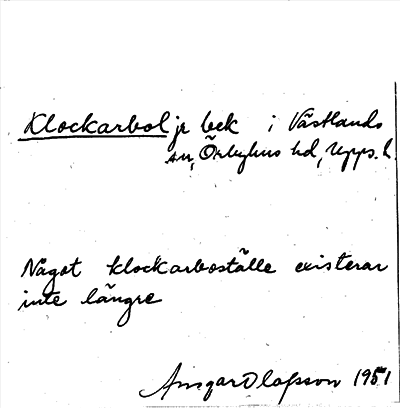 Klockarbol je bek i Västlands
sn, Örbyhus hd, Upps. l.
Något klockarboställe existerar
inte längre
Ansgar Olafsson 1951